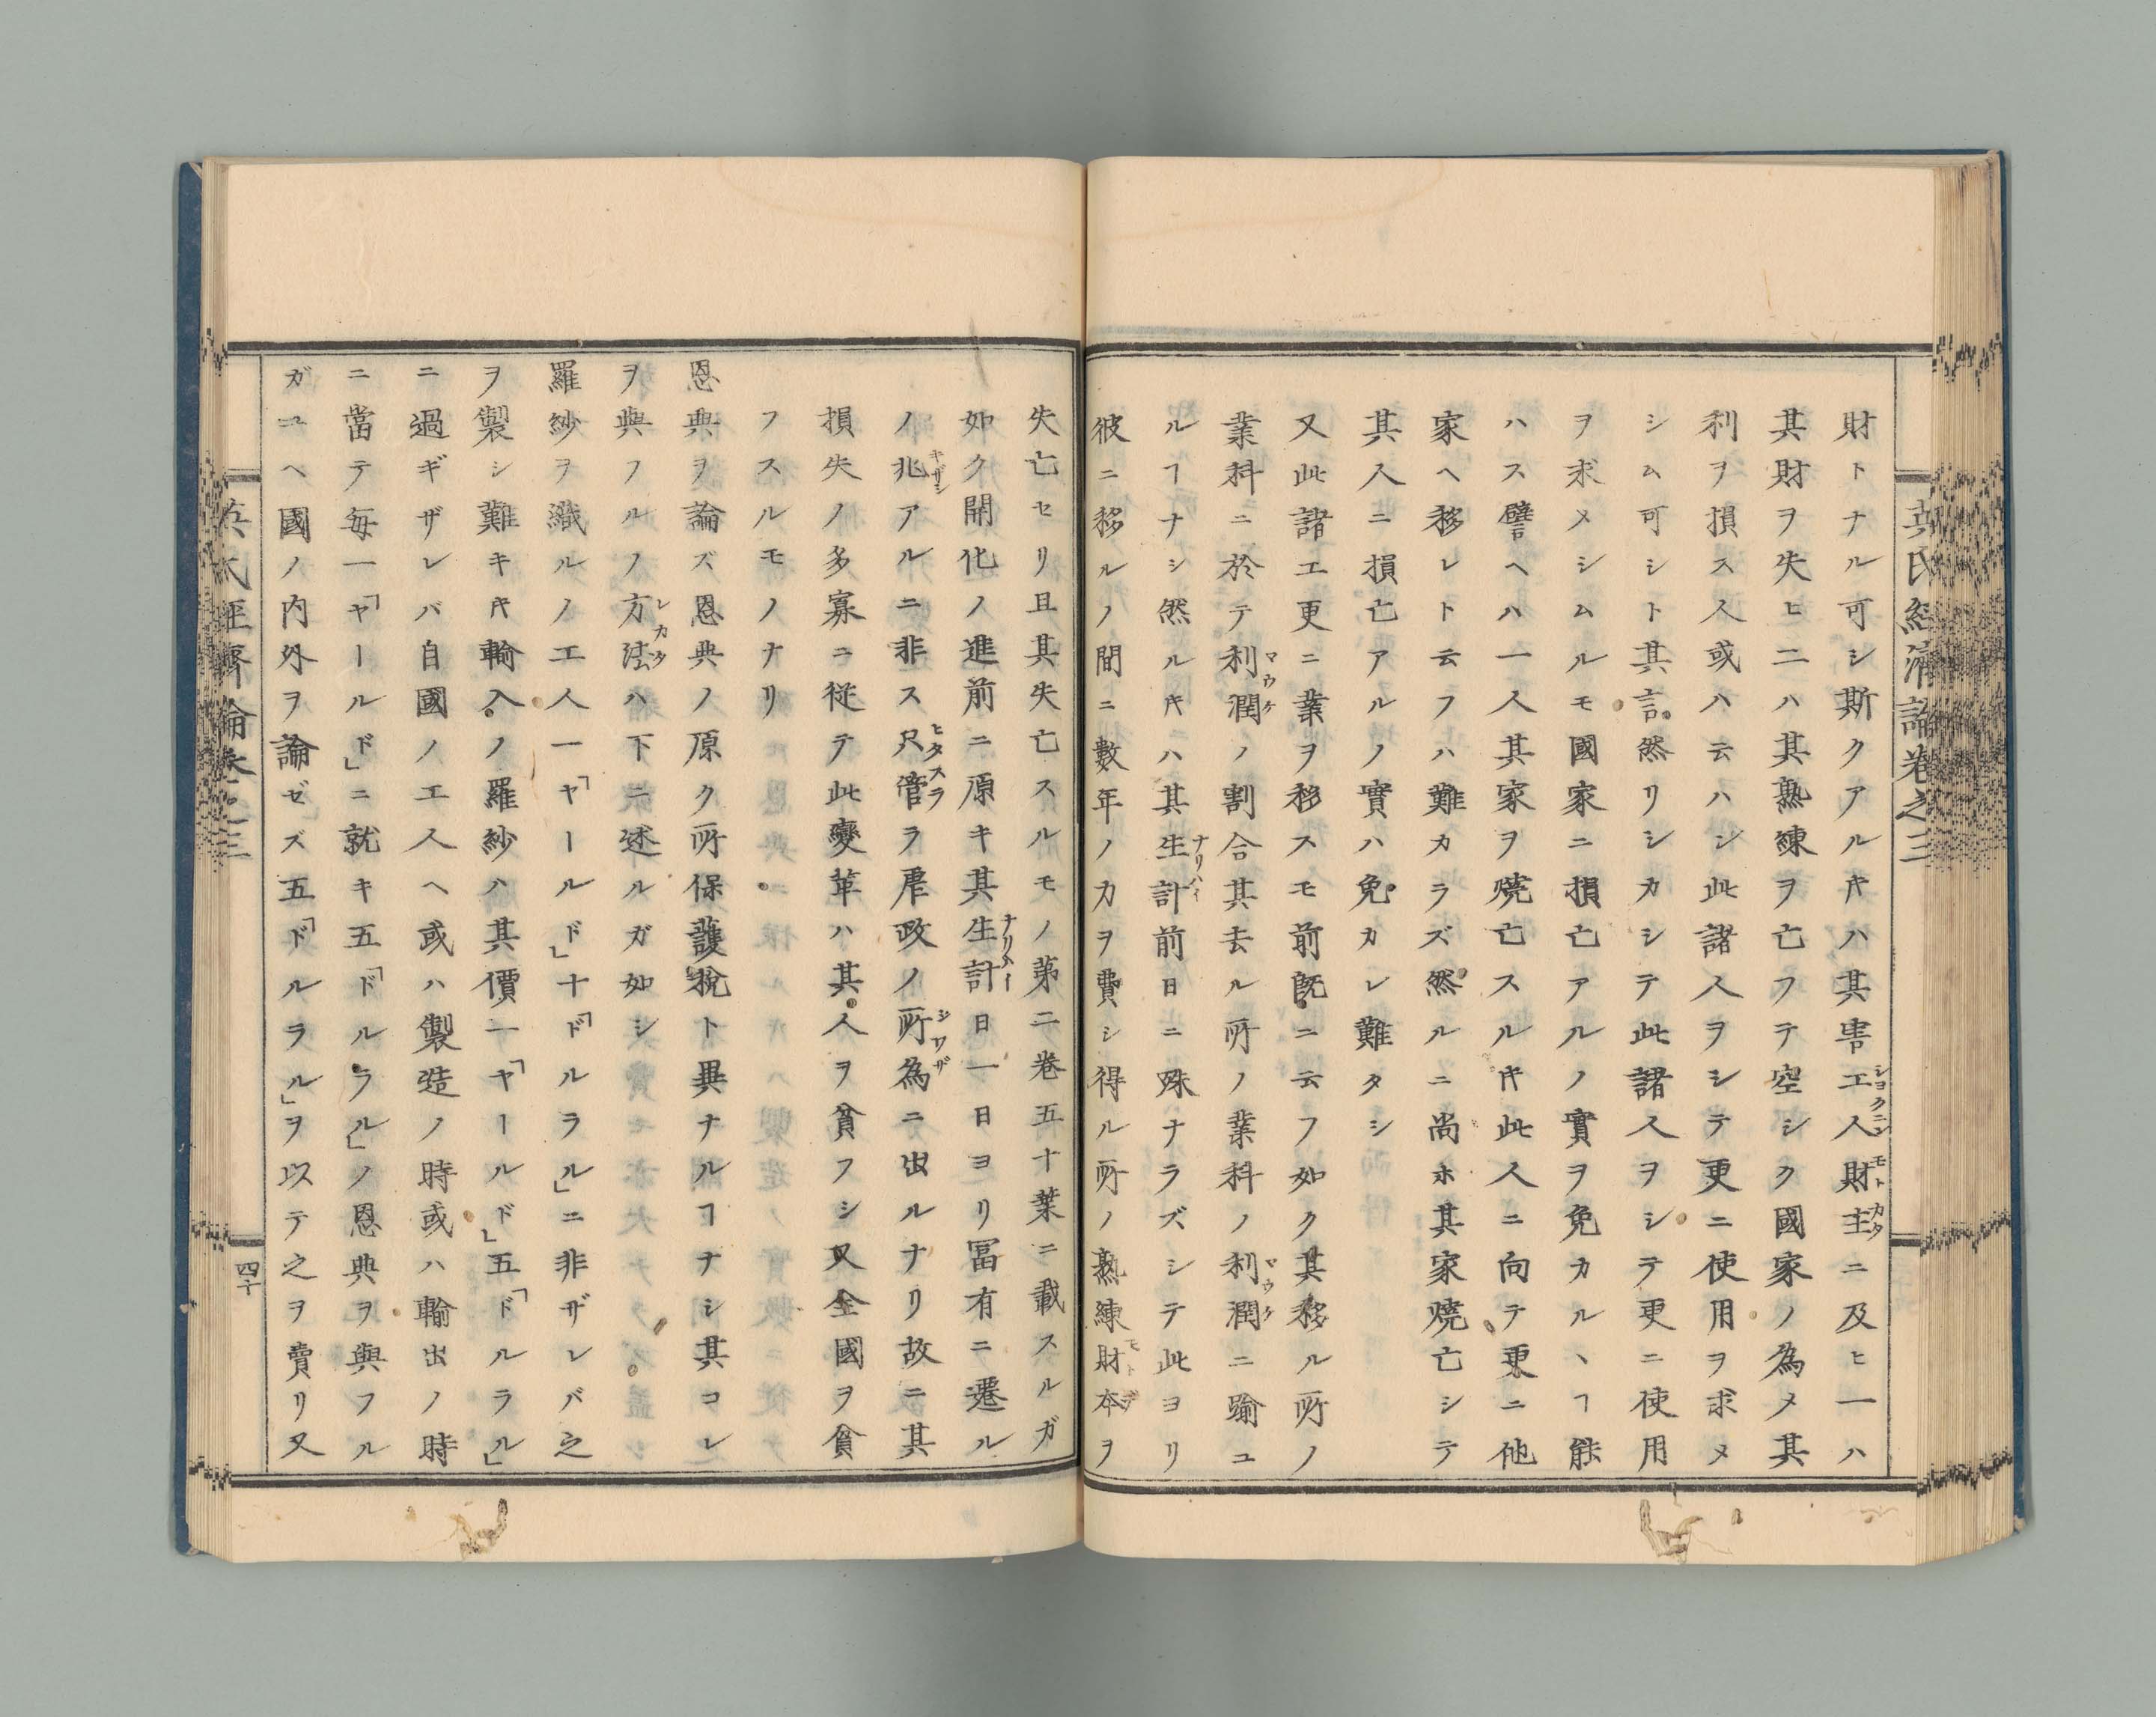 英氏經濟論卷之三
財トナル可シ斯クアルキハ其害工人財主ニ及ヒ一ハ
其財ヲ失ヒ二ハ其熟練ヲ亡フテ空シク國家ノ為メ其
利ヲ損ス人或ハ云ハン此諸人ヲシテ更ニ使用ヲ求メ
シム可シト其言然リシカシテ此諸人ヲシテ更ニ使用
ヲ求メシムルモ國家ニ損亡アルノ實ヲ免カルヽヿ能
ハス譬ヘハ一人其家ヲ燒亡スルキ此人ニ向テ更ニ他
家ヘ移レト云フハ難カラズ然ルニ尚ホ其家燒亡シテ
其人ニ損亡アルノ實ハ免カレ難タシ
又此諸工更ニ業ヲ移スモ前既ニ云フ如ク其移ル所ノ
業科ニ於テ利潤ノ割合其去ル所ノ業科ノ利潤ニ踰ユ
ルヿナシ然ルキニハ其生計前日ニ殊ナラズシテ此ヨリ
彼ニ移ルノ間ニ數年ノ力ヲ費シ得ル所ノ熟練財本ヲ
失亡セリ且其失亡スルモノ第二卷五十葉ニ載スルガ
如ク開化ノ進前ニ原キ其生計日一日ヨリ冨有ニ遷ル
ノ兆アルニ非ス尺管ラ虐政ノ所為ニ出ルナリ故ニ其
損失ノ多寡ニ從テ此變革ハ其人ヲ貧フシ又全國ヲ貧
フスルモノナリ
恩典ヲ論ズ恩典ノ原ク所保護税ト異ナルヿナシ其コレ
ヲ與フルノ方法ハ下ニ述ルガ如シ
羅紗ヲ織ルノ工人一「ヤールド」十「ドルラル」ニ非ザレバ之
ヲ製シ難キキ輸入ノ羅紗ハ其價一「ヤールド」五「ドルラル」
ニ過ギザレバ自國ノ工人ヘ或ハ製造ノ時或ハ輸出ノ時
ニ當テ每一「ヤールド」ニ就キ五「ドルラル」ノ恩典ヲ與フル
ガユヘ國ノ内外ヲ論ゼズ五「ドルラル」ヲ以テ之ヲ賣リ又
英氏經濟論卷之三
四十